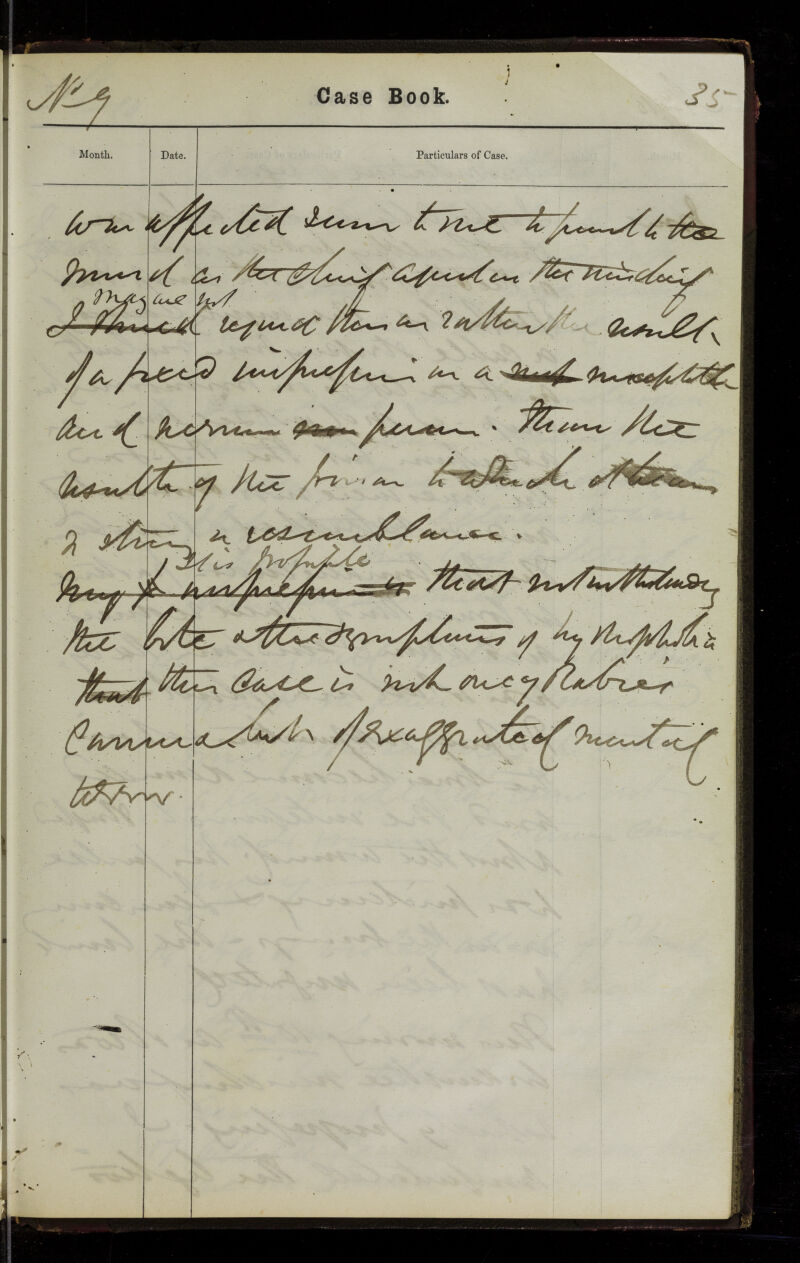 No 9
Case Book.
35
Month. Date. Particulars of Case.
was affected seem to me to point to the
mind as the chief agent in the mischief
may we not
I should regard them as rather the result
of a fixed impression on a susceptible
and nervous person. than the
results of the poison to which it bears
so strong a resemblance.
It is probable
my impression is that notwithstanding
the bite & the symptoms of hydrophobia
that this case is not one of Rabies
Canina but of exaggerated mental
terror.